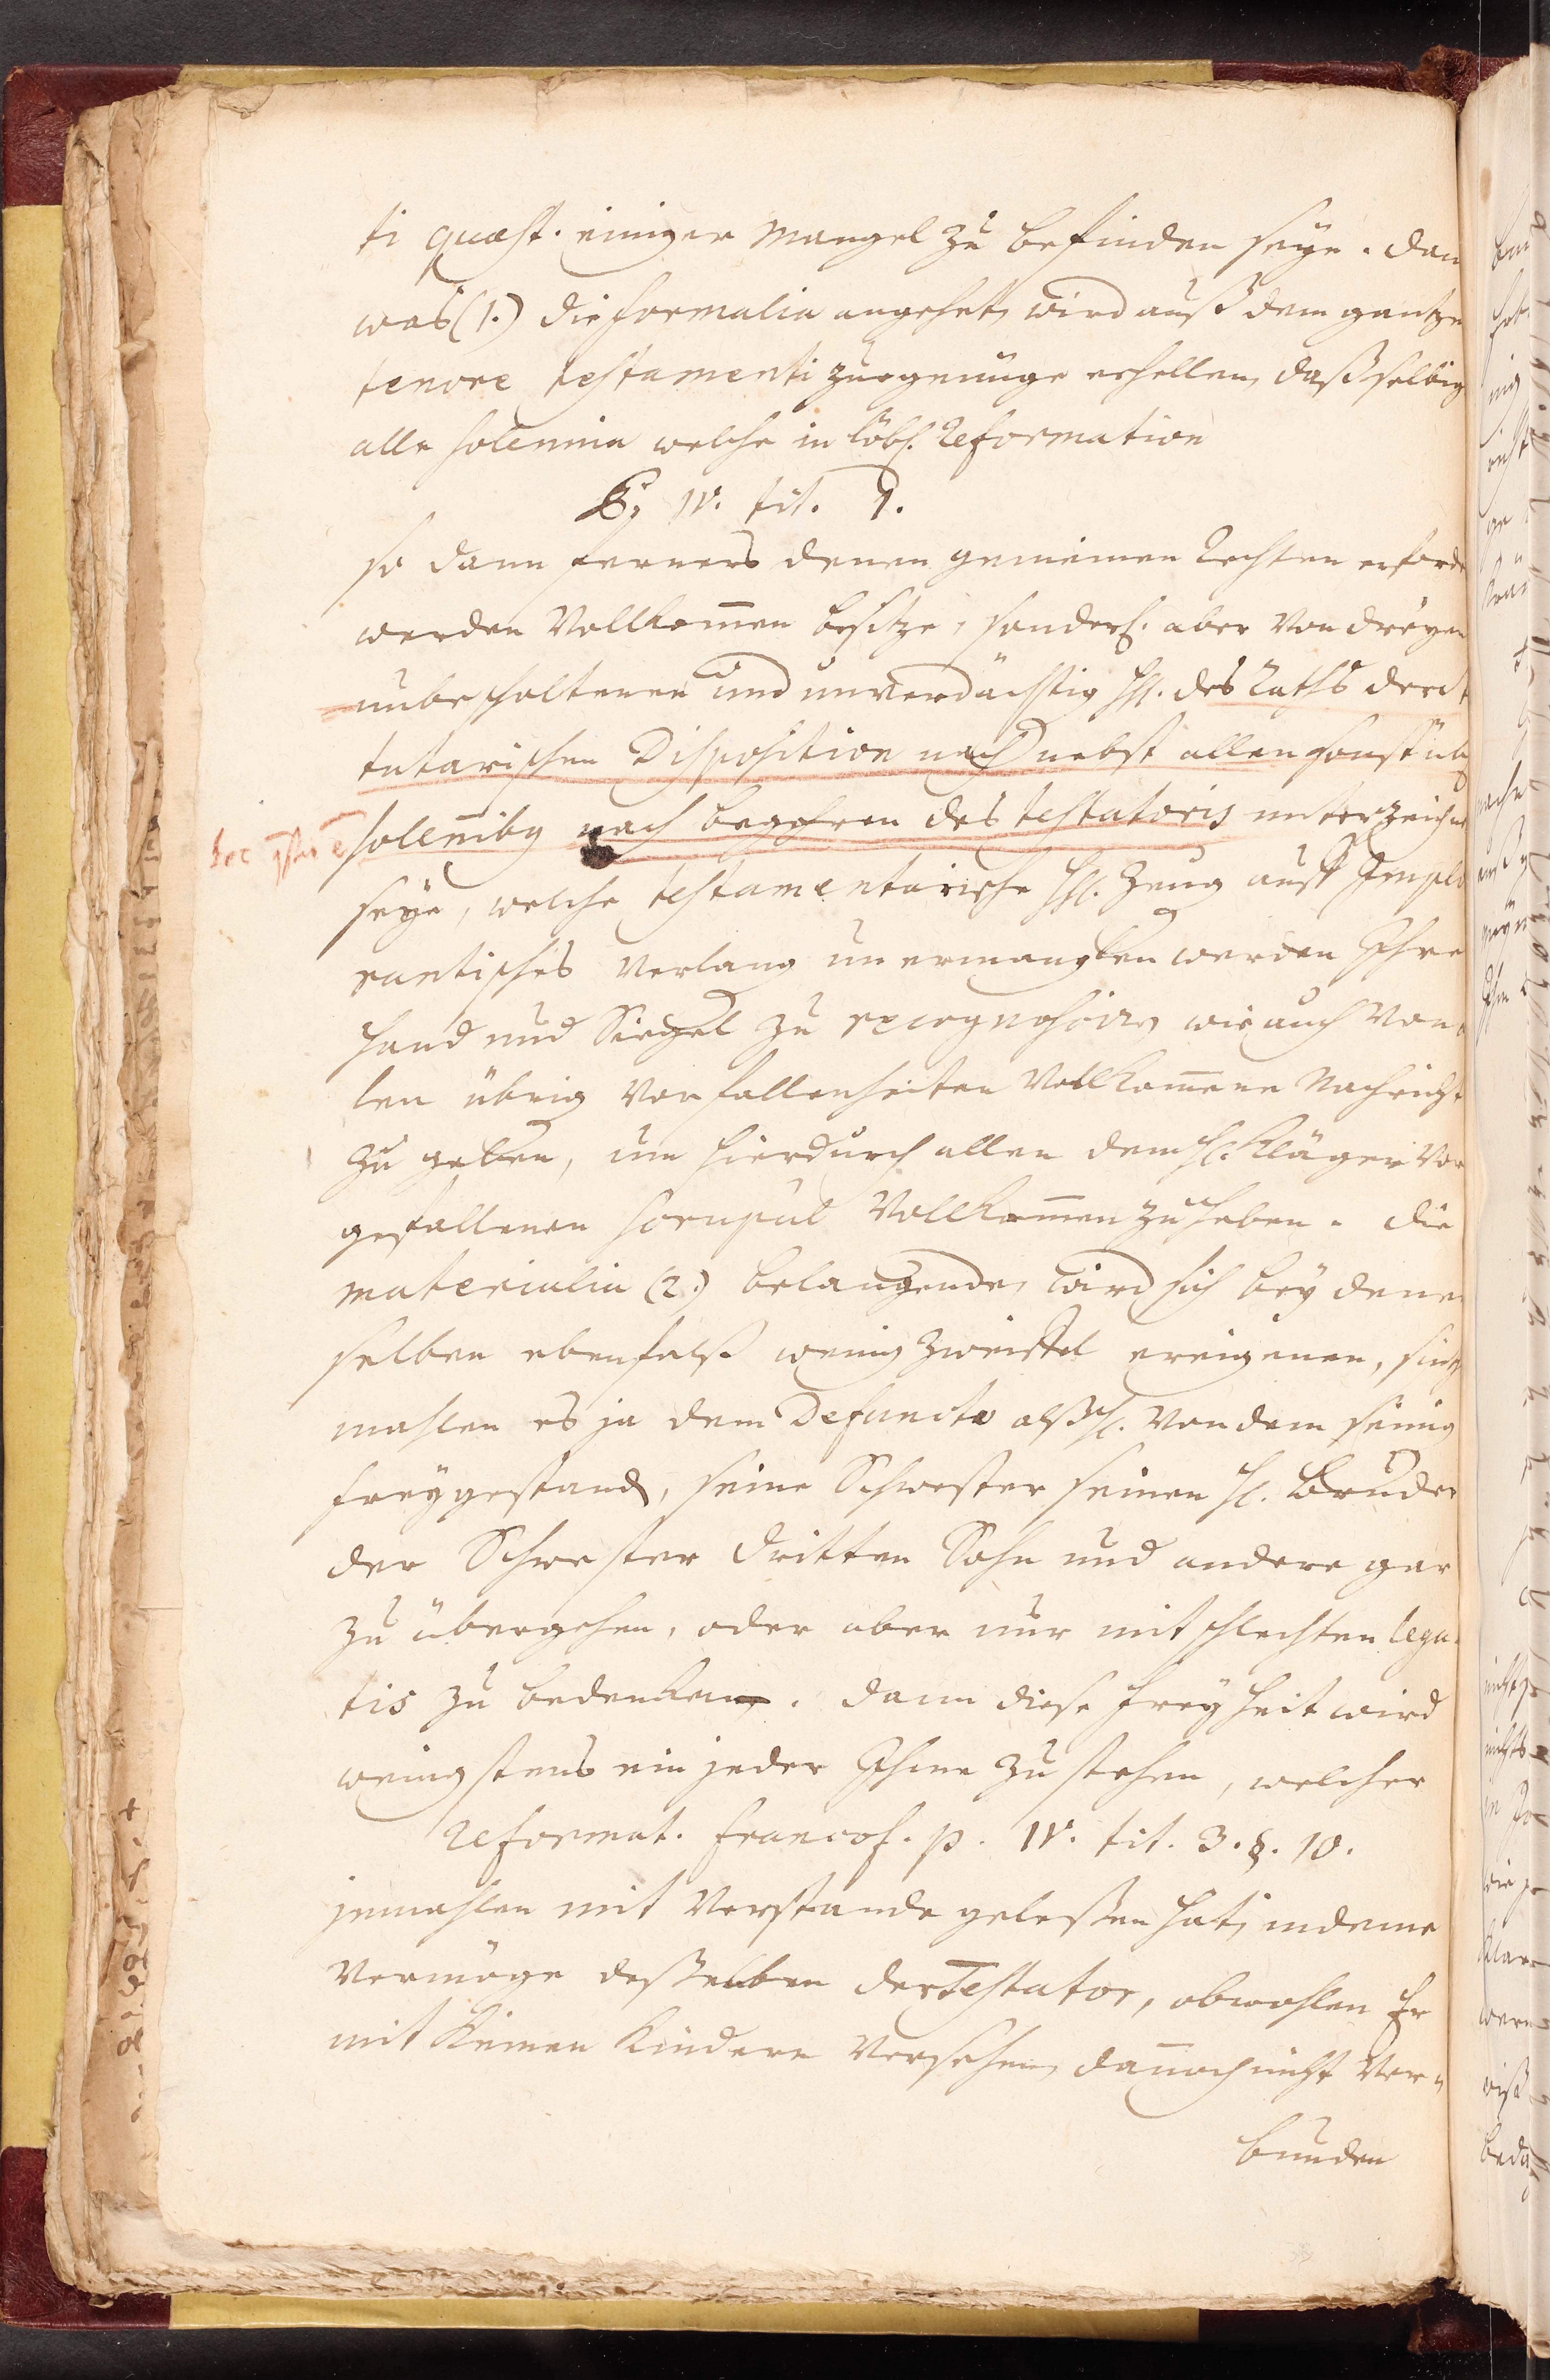 ti quæst. einiger Mangel zu befinden seye. dan
was (1.) die formalia angehet, wird auß dem gantzen
tenore testamenti zur genüge erhellen, daß selbig
alle solennia welche in löbl. Reformation
P. IV. tit. 1.
so dann ferners denen gemeinen Rechten erforde
werden Vollkom̅en besitze, sonderl. aber Von dreyen
unbescholtenen und unverdächtig HH. des Raths der
tutarischen Disposition nach nebst allen sonst üb
solennibq nach begehren des testatoris unterzeichnet
seye, welche testamentarische HH. Zeug auff Implo
rantisches Verlang unermanglen werden Ihre
Hand und Siegel zu recognosciren wie auch Von
len übrig Vorfallenheiten Vollkom̅ene Nachricht
zu geben, um hierdurch allen dem H. Kläger Vor
gefallenen scrupul Vollkom̅en zu heben. die
materialia (2.) belangende, wird sich bey dene
selben ebenfalß wenig Zweiffel ereigenen, sint
mahlen es ja dem Defuncto alß H. Von dem seinig
frey gestand, seine Schwester seinen H. Bruder
der Schwester dritten Sohn und andere gar
zu übergehen, oder aber nur mit schlechten lega
tis zu bedenken. dann diese Freyheit wird
wenigstens ein jeder Ihme zu stehen, welcher
Reformat. Francof. p. IV. tit. 3. §. 10.
jemahlen mit Verstande geleßen hat, indeme
Vermöge deßelben der Testator, obwohlen Er
mit keinen Kindern Versehen, dan̅och nicht Ver-
bunden